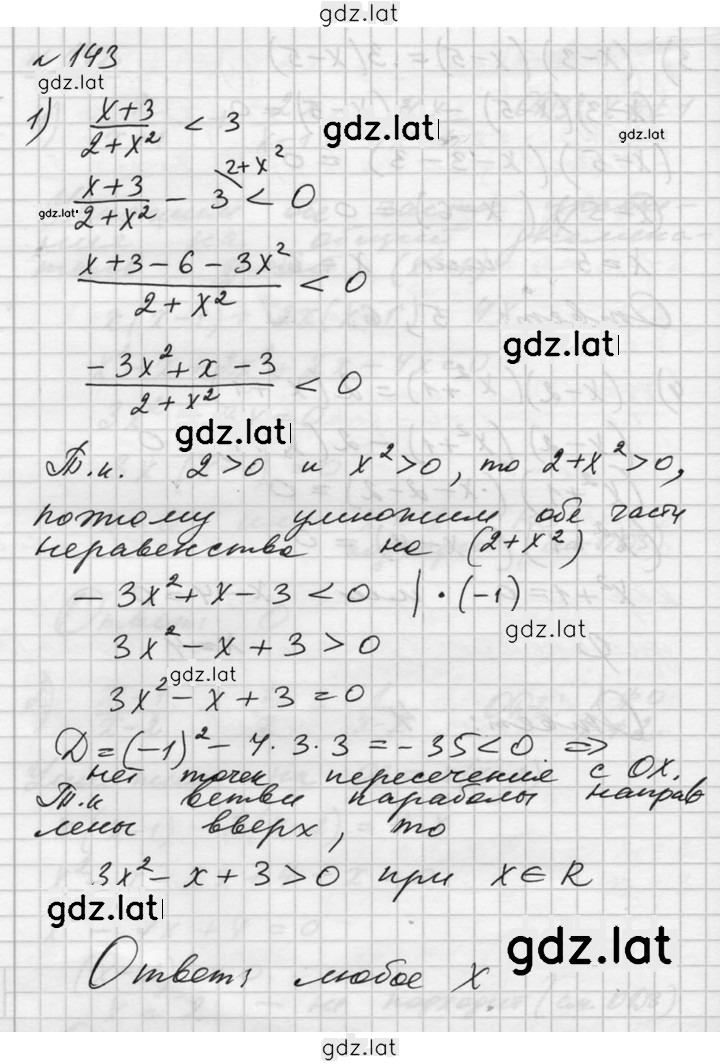 gdz.lat
№ 143
gdz.lat
1) (x+3)/(2+x²) < 3
gdz.lat
gdz.lat
(x+3)/(2+x²) - 3 < 0
2+x²
gdz.lat
(x+3-6-3x²)/(2+x²) < 0
gdz.lat
(-3x²+x-3)/(2+x²) < 0
gdz.lat
Т.к. 2>0 и x²>0, то 2+x²>0,
поэтому умножим обе части
неравенства на (2+x²)
-3x²+x-3<0 | · (-1)
gdz.lat
3x²-x+3>0
gdz.lat
3x²-x+3=0
D=(-1)²-4·3·3=-35<0 =>
нет точек пересечения с OX.
Т.к ветви параболы направ
лены вверх, то
3x²-x+3>0 при x∈R
gdz.lat
gdz.lat
Ответ: любое x
gdz.lat